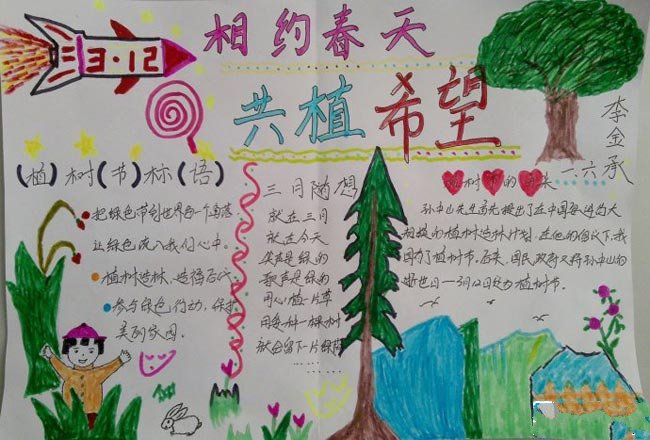 3·12
相约春天
共植希望
李金承
一.六
(植)树(节)标(语)
把绿色带到世界每一个角落
让绿色流入我们心中。
植树造林,造福后代。
参与绿色行动,保护
美丽家园。
三月随想
就在三月
就在今天
笑声是绿的
歌声是绿的
用心植一片草
用爱种一棵树
就会留下一片绿荫
……
植树节的由来
孙中山先生首先提出了在中国每
植树造林计划,在他的倡议下,我
国有了植树节。后来,国民政府又将孙中山的
逝世日—3月12日定为植树节。